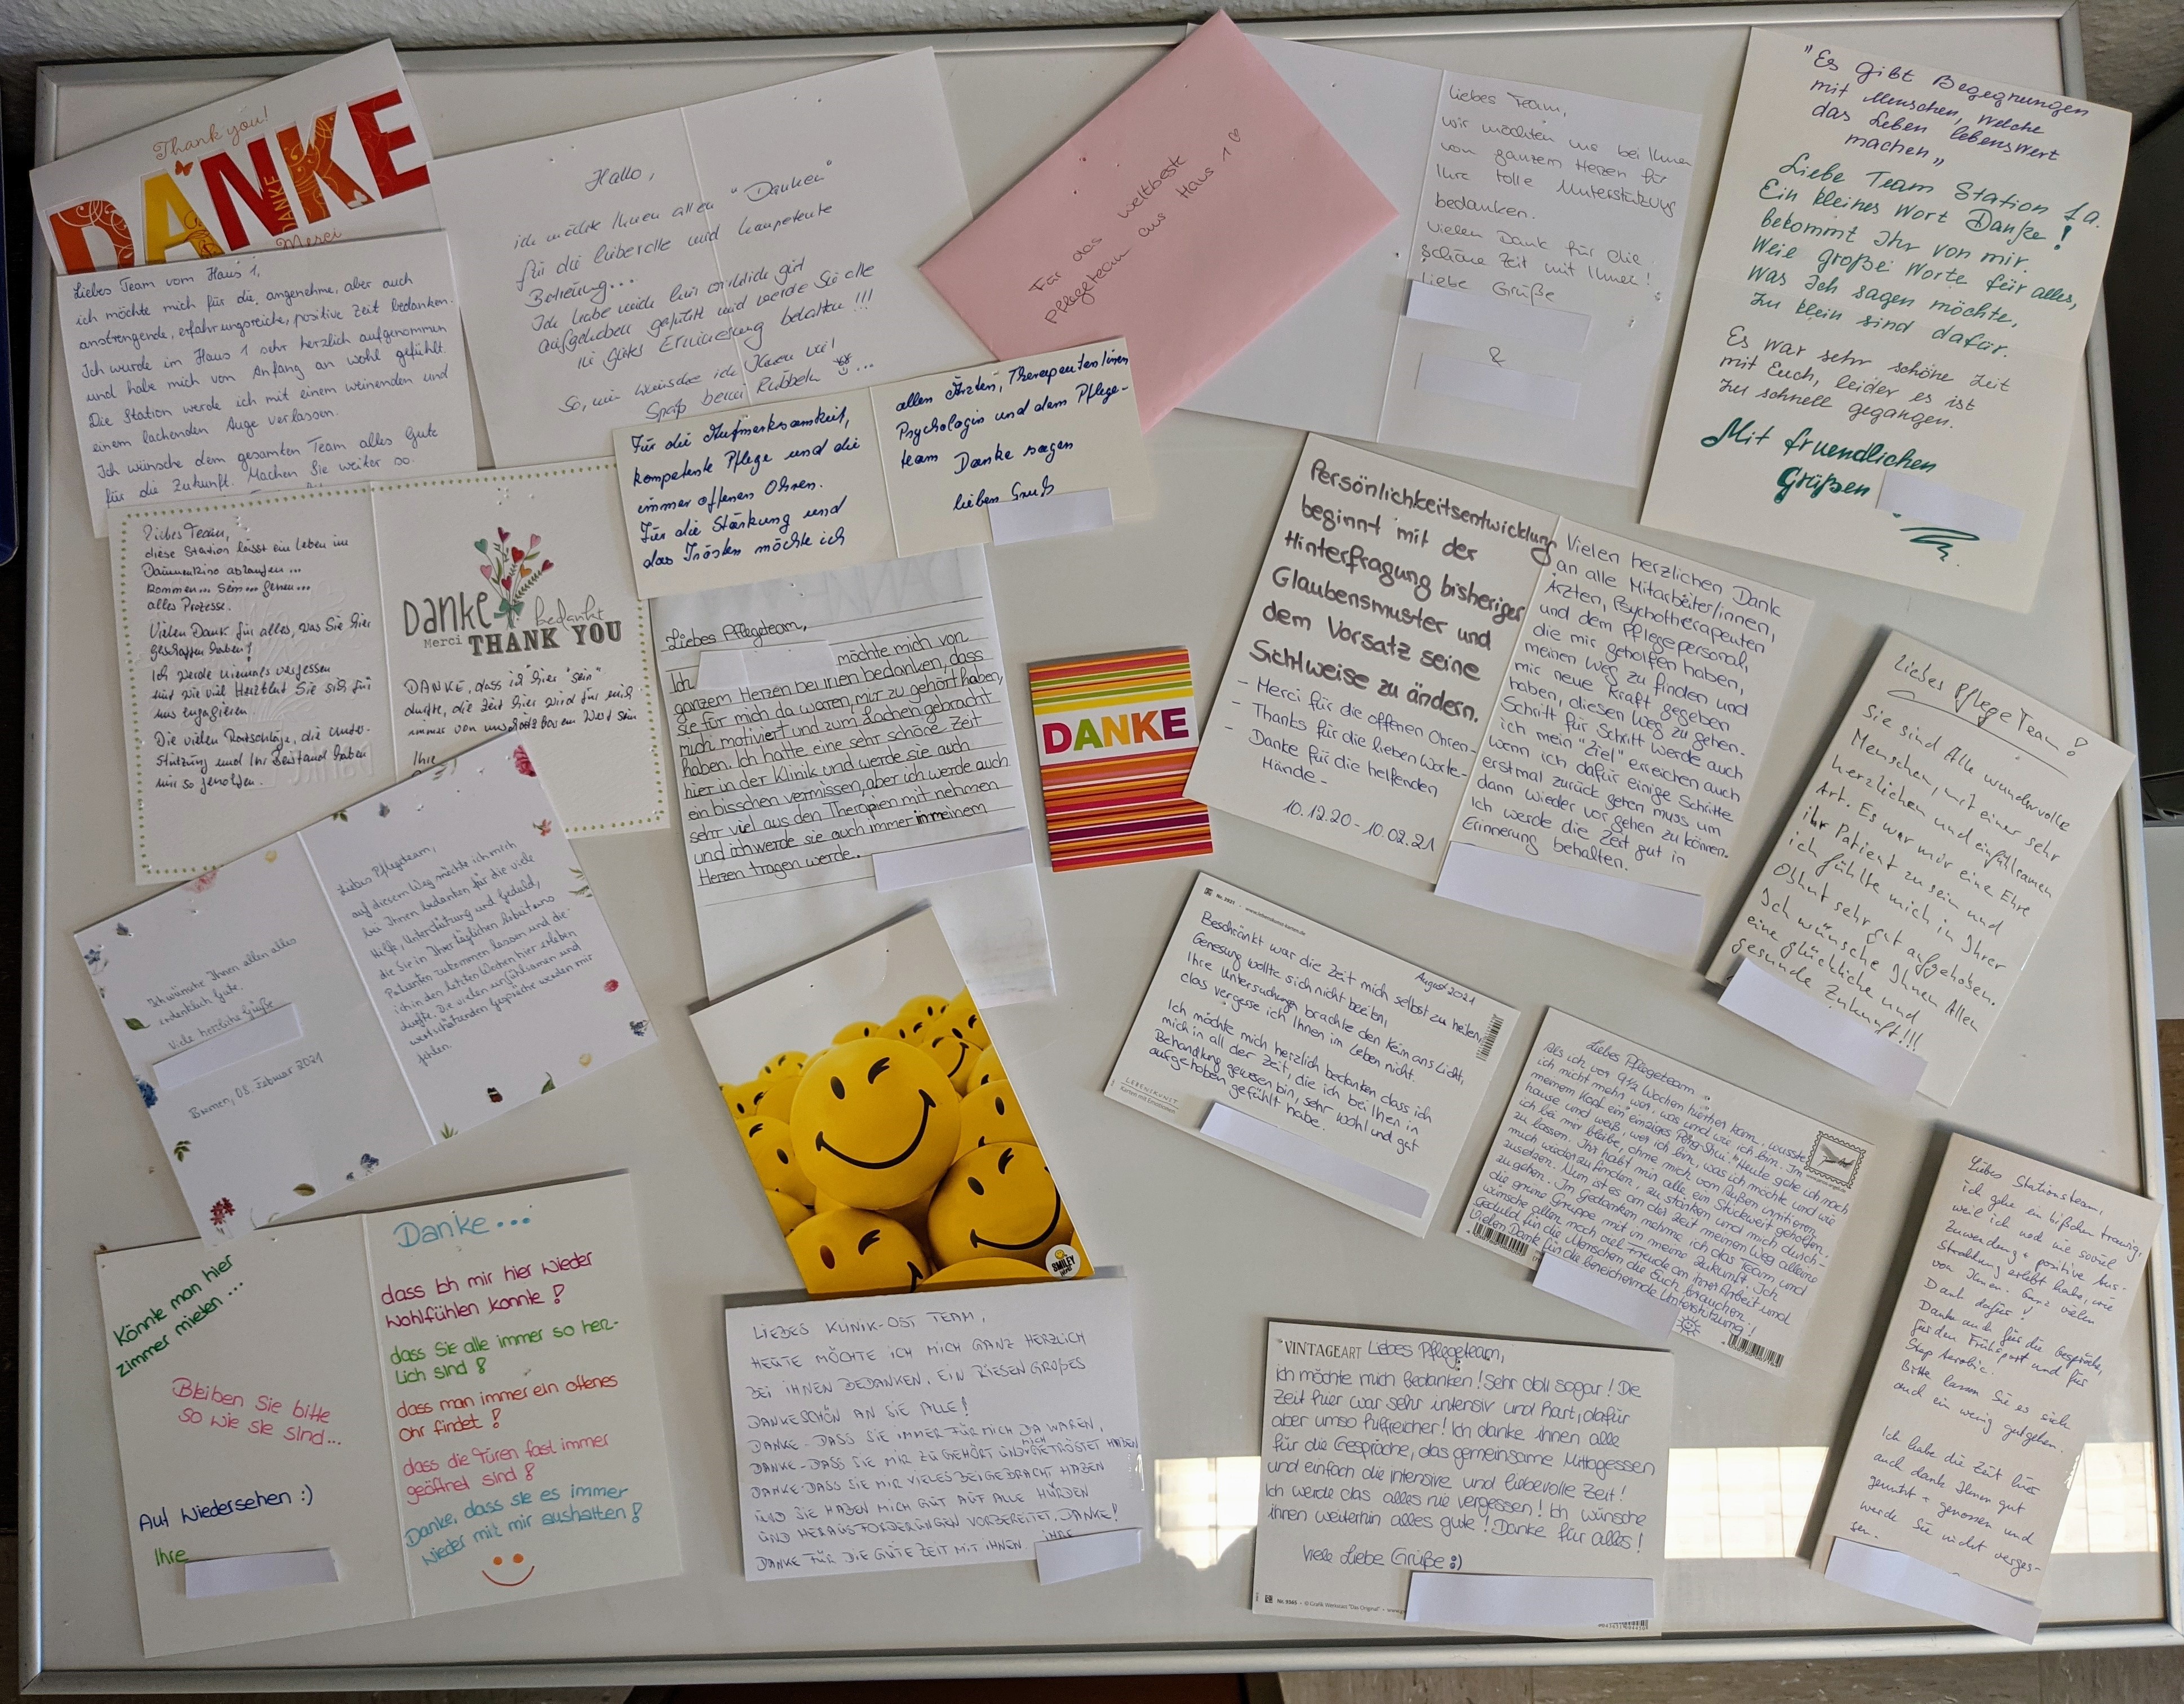 Thank you!
DANKE
DANKE
Merci
Liebes Team vom Haus 1,
ich möchte mich für die angenehme, aber auch
anstrengende, erfahrungsreiche, positive Zeit bedanken.
Ich wurde im Haus 1 sehr herzlich aufgenommen
und habe mich vom Anfang an wohl gefühlt.
Die Station werde ich mit einem weinenden und
einem lachenden Auge verlassen.
Ich wünsche dem gesamten Team alles Gute
für die Zukunft. Machen Sie weiter so.
Hallo,
ich möchte Ihnen allen "Danken"
für die liebevolle und kompetente
Betreuung...
Ich habe mich hier wirklich gut
aufgehoben gefühlt und werde Sie alle
in guter Erinnerung behalten!!!
So, nun wünsche ich Ihnen viel
Spaß beim Rubbeln ...
Für das weltbeste
Pflegeteam aus Haus 1 ♡
Liebes Team,
wir möchten uns bei Ihnen
von ganzem Herzen für
Ihre tolle Unterstützung
bedanken.
Vielen Dank für die
schöne Zeit mit Ihnen!
Liebe Grüße
&
"Es gibt Begegnungen
mit Menschen, welche
das Leben lebenswert
machen"
Liebe Team Station 1a.
Ein kleines Wort Danke!
bekommt Ihr von mir.
Weil große Worte für alles,
was Ich sagen möchte,
zu klein sind dafür.
Es war sehr schöne Zeit
mit Euch, leider es ist
zu schnell gegangen.
Mit fruendlichen
Grüßen
Für die Aufmerksamkeit,
kompetente Pflege und die
immer offenen Ohren.
Für die Stärkung und
das Trösten möchte ich
allen Ärzten, Therapeuten/innen
Psychologin und dem Pflege-
team Danke sagen
lieben Gruß
Liebes Team,
diese Station lässt ein Leben im
Daumenkino ablaufen...
kommen... sein... gehen...
alles Prozesse.
Vielen Dank für alles, was Sie hier
geschaffen haben!
Ich werde niemals vergessen
mit wie viel Herzblut Sie sich für
uns engagieren.
Die vielen Ratschläge, die Unter-
stützung und Ihr Beistand haben
mir so geholfen.
Danke bedankt
Merci THANK YOU
DANKE, dass ich hier "sein"
durfte, die Zeit hier wird für mich
immer von unschätzbarem Wert sein
Ihre
Liebes Pflegeteam,
Ich möchte mich von
ganzem Herzen bei Ihnen bedanken, dass
sie für mich da waren, mir zu gehört haben,
mich motiviert und zum Lachen gebracht
haben. Ich hatte eine sehr schöne Zeit
hier in der Klinik und werde sie auch
ein bisschen vermissen, aber ich werde auch
sehr viel aus den Therapien mit nehmen
und ich werde sie auch immer in meinem
Herzen tragen werde.
DANKE
Persönlichkeitsentwicklung
beginnt mit der
Hinterfragung bisheriger
Glaubensmuster und
dem Vorsatz seine
Sichtweise zu ändern.
- Merci für die offenen Ohren -
- Thanks für die lieben Worte -
- Danke für die helfenden
Hände -
10.12.20 - 10.02.21
Vielen herzlichen Dank
an alle Mitarbeiter/innen,
Ärzten, Psychotherapeuten
und dem Pflegepersonal,
die mir geholfen haben,
meinen Weg zu finden und
mir neue Kraft gegeben
haben, diesen Weg zu gehen.
Schritt für Schritt werde auch
ich mein "Ziel" erreichen auch
wenn ich dafür einige Schritte
erstmal zurück gehen muss um
dann wieder vor gehen zu können.
Ich werde die Zeit gut in
Erinnerung behalten.
Liebes Pflege Team!
Sie sind Alle wundervolle
Menschen, mit einer sehr
herzlichen und einfühlsamen
Art. Es war mir eine Ehre
ihr Patient zu sein und
ich fühlte mich in Ihrer
Obhut sehr gut aufgehoben.
Ich wünsche Ihnen Allen
eine glückliche und
gesunde Zukunft!!!
Ich wünsche Ihnen allen alles
erdenklich Gute.
Viele herzliche Grüße
Bremen, 08. Februar 2021
Liebes Pflegeteam,
auf diesem Weg möchte ich mich
bei Ihnen bedanken für die viele
Hilfe, Unterstützung und Geduld,
die Sie in Ihrer täglichen Arbeit uns
Patienten zukommen lassen und die
ich in den letzten Wochen hier erleben
durfte. Die vielen einfühlsamen und
wertschätzenden Gespräche werden mir
fehlen.
SMILEY
Nr. 3921 - www.lebenskunst-karten.de
August 2021
Beschränkt war die Zeit mich selbst zu heilen,
Genesung wollte sich nicht beeilen,
Ihre Untersuchungen brachte den Keim ans Licht,
das vergesse ich Ihnen im Leben nicht.
Ich möchte mich herzlich bedanken dass ich
mich in all der Zeit, die ich bei Ihnen in
Behandlung gewesen bin, sehr wohl und gut
aufgehoben gefühlt habe.
LEBENSKUNST
Karten mit Emotionen
Liebes Pflegeteam
Als ich vor 9½ Wochen hierher kam, wusste
ich nicht mehr wer, was und wie ich bin. In
meinem Kopf ein einziges "Ping-Shui". Heute gehe ich nach
hause und weiß, wer ich bin, was ich möchte und wie
ich bei mir bleibe, ohne mich vom Außen irritieren
zu lassen. Ihr habt mir alle ein Stückweit geholfen,
mich wieder zu finden, zu stärken und mich durch-
zusetzen. Nun ist es an der Zeit meinen Weg alleine
zu gehen. Im Gedanken nehme ich das Team und
die grüne Gruppe mit in meine Zukunft. Ich
wünsche allen noch viel Freude an Ihrer Arbeit und
Geduld für die Menschen die Euch brauchen.
Vielen Dank für die bereichernde Unterstützung!
Liebes Stationsteam,
ich gehe ein bißchen traurig,
weil ich noch nie soviel
Zuwendung + positive Aus-
strahlung erlebt habe, wie
von Ihnen. Ganz vielen
Dank dafür!
Danke auch für die Gespräche,
für den Frühsport und für
Step Aerobic.
Bitte lassen Sie es sich
auch ein wenig gutgehen.
Ich habe die Zeit hier
auch dank Ihnen gut
genutzt + genossen und
werde Sie nicht verges-
sen.
Könnte man hier
zimmer mieten ...
Bleiben Sie bitte
so wie sie sind...
Auf Wiedersehen :)
Ihre
Danke...
dass Ich mir hier wieder
wohlfühlen konnte!
dass Sie alle immer so herz-
lich sind!
dass man immer ein offenes
Ohr findet!
dass die Türen fast immer
geöffnet sind!
Danke, dass sie es immer
wieder mit mir aushalten!
LIEBES KLINIK-OST TEAM,
HEUTE MÖCHTE ICH MICH GANZ HERZLICH
BEI IHNEN BEDANKEN. EIN RIESEN GROßES
DANKESCHÖN AN SIE ALLE!
DANKE - DASS SIE IMMER FÜR MICH DA WAREN,
DANKE - DASS SIE MIR ZU GEHÖRT UND MICH GETRÖSTET HABEN
DANKE - DASS SIE MIR VIELES BEIGEBRACHT HABEN
UND SIE HABEN MICH GUT AUF ALLE HÜRDEN
UND HERAUSFORDERUNGEN VORBEREITET. DANKE!
DANKE FÜR DIE GUTE ZEIT MIT IHNEN. IHRE
VINTAGEART Liebes Pflegeteam,
ich möchte mich bedanken! Sehr doll sogar! Die
Zeit hier war sehr intensiv und hart, dafür
aber umso hilfreicher! Ich danke Ihnen alle
für die Gespräche, das gemeinsame Mittagessen
und einfach die intensive und liebevolle Zeit!
Ich werde das alles nie vergessen! Ich wünsche
ihnen weiterhin alles gute! Danke für alles!
Viele Liebe Grüße :)
Nr. 9365 - © Grafik Werkstatt "Das Original"